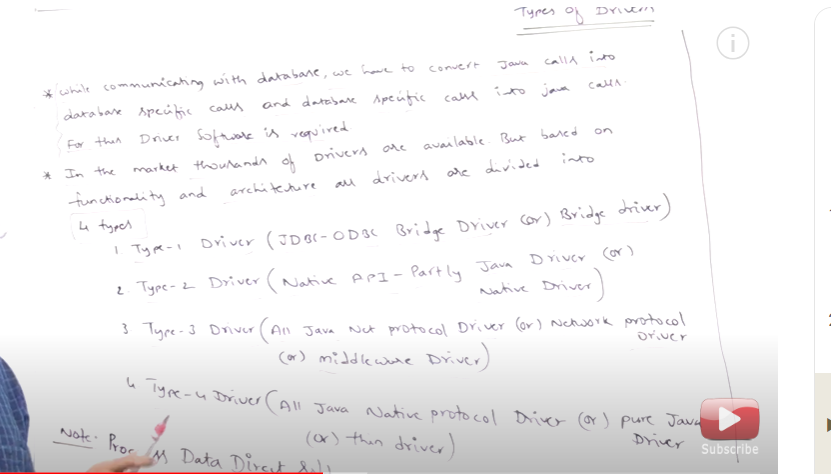 Types Of Drivers
* While communicating with database, we have to convert Java calls into
database specific calls and database specific calls into java calls.
For this Driver Software is required
* In the market thousands of Drivers are available. But based on
functionality and architecture all drivers are divided into
4 types
1 Type-1 Driver (JDBC-ODBC Bridge Driver (or) Bridge driver)
2. Type-2 Driver (Native API-Partly Java Driver (or)
Native Driver)
3 Type-3 Driver (All Java Net protocol Driver (or) Network protocol
Driver
(or) middleware Driver)
4 Type-4 Driver (All Java Native protocol Driver (or) pure Java
Driver
(or) thin driver)
Note: Data Direct
Subscribe